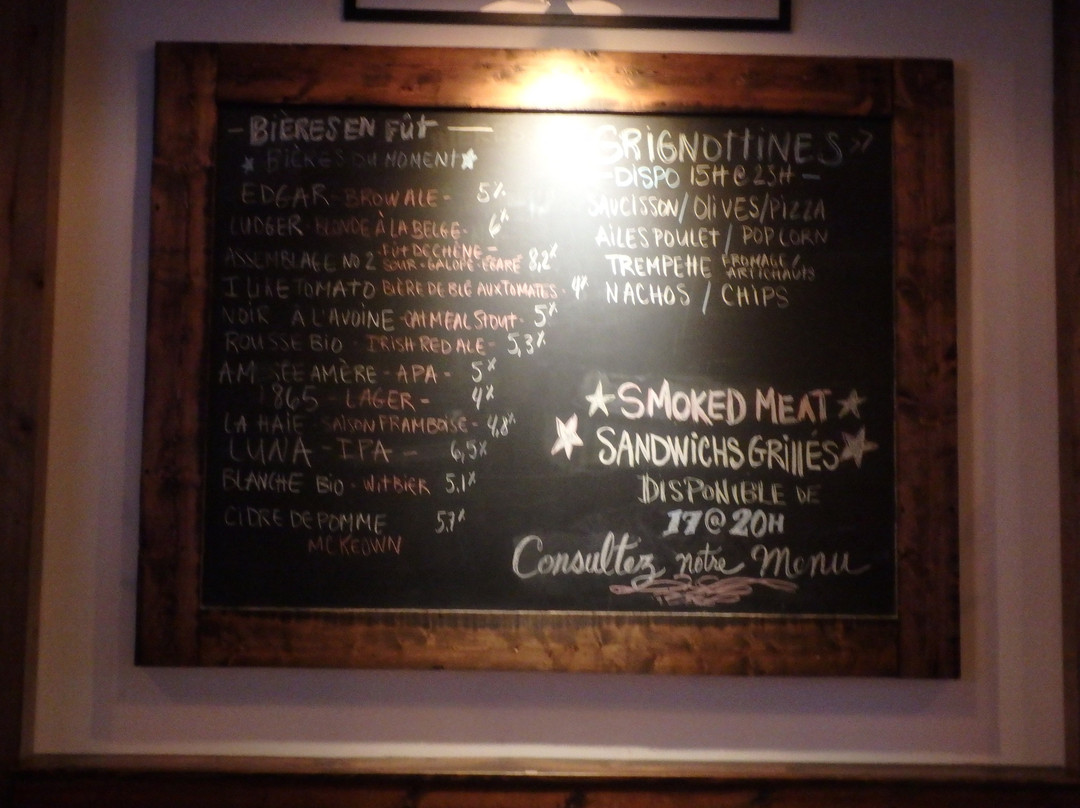 - BIÈRES EN FÛT —
BIÈRES DU MOMENT
EDGAR - BROWALE - 5%
LUDGER BLONDE À LA BELGE - 6%
ASSEMBLAGE NO 2 FÛT DE CHÊNE -
SOUR - GALOPE - ÉGARÉ 8,2%
I LIKE TOMATO BIÈRE DE BLÉ AUX TOMATES - 4%
NOIR À L'AVOINE - OATMEAL STOUT - 5%
ROUSSE BIO - IRISH RED ALE - 5,3%
AMÈRE - APA - 5%
1865 - LAGER - 4%
LA HAIE - SAISON FRAMBOISE - 4,8%
LUNA - IPA - 6,5%
BLANCHE BIO - WITBIER 5.1%
CIDRE DE POMME 5,7%
MCKEOWN
GRIGNOTTINES >>
- DISPO 15H @ 23H -
SAUCISSON / OLIVES / PIZZA
AILES POULET / POP CORN
TREMPETTE FROMAGE /
ARTICHAUTS
NACHOS / CHIPS
SMOKED MEAT
SANDWICHS GRILLÉS
DISPONIBLE DE
17 @ 20H
Consultez notre Menu